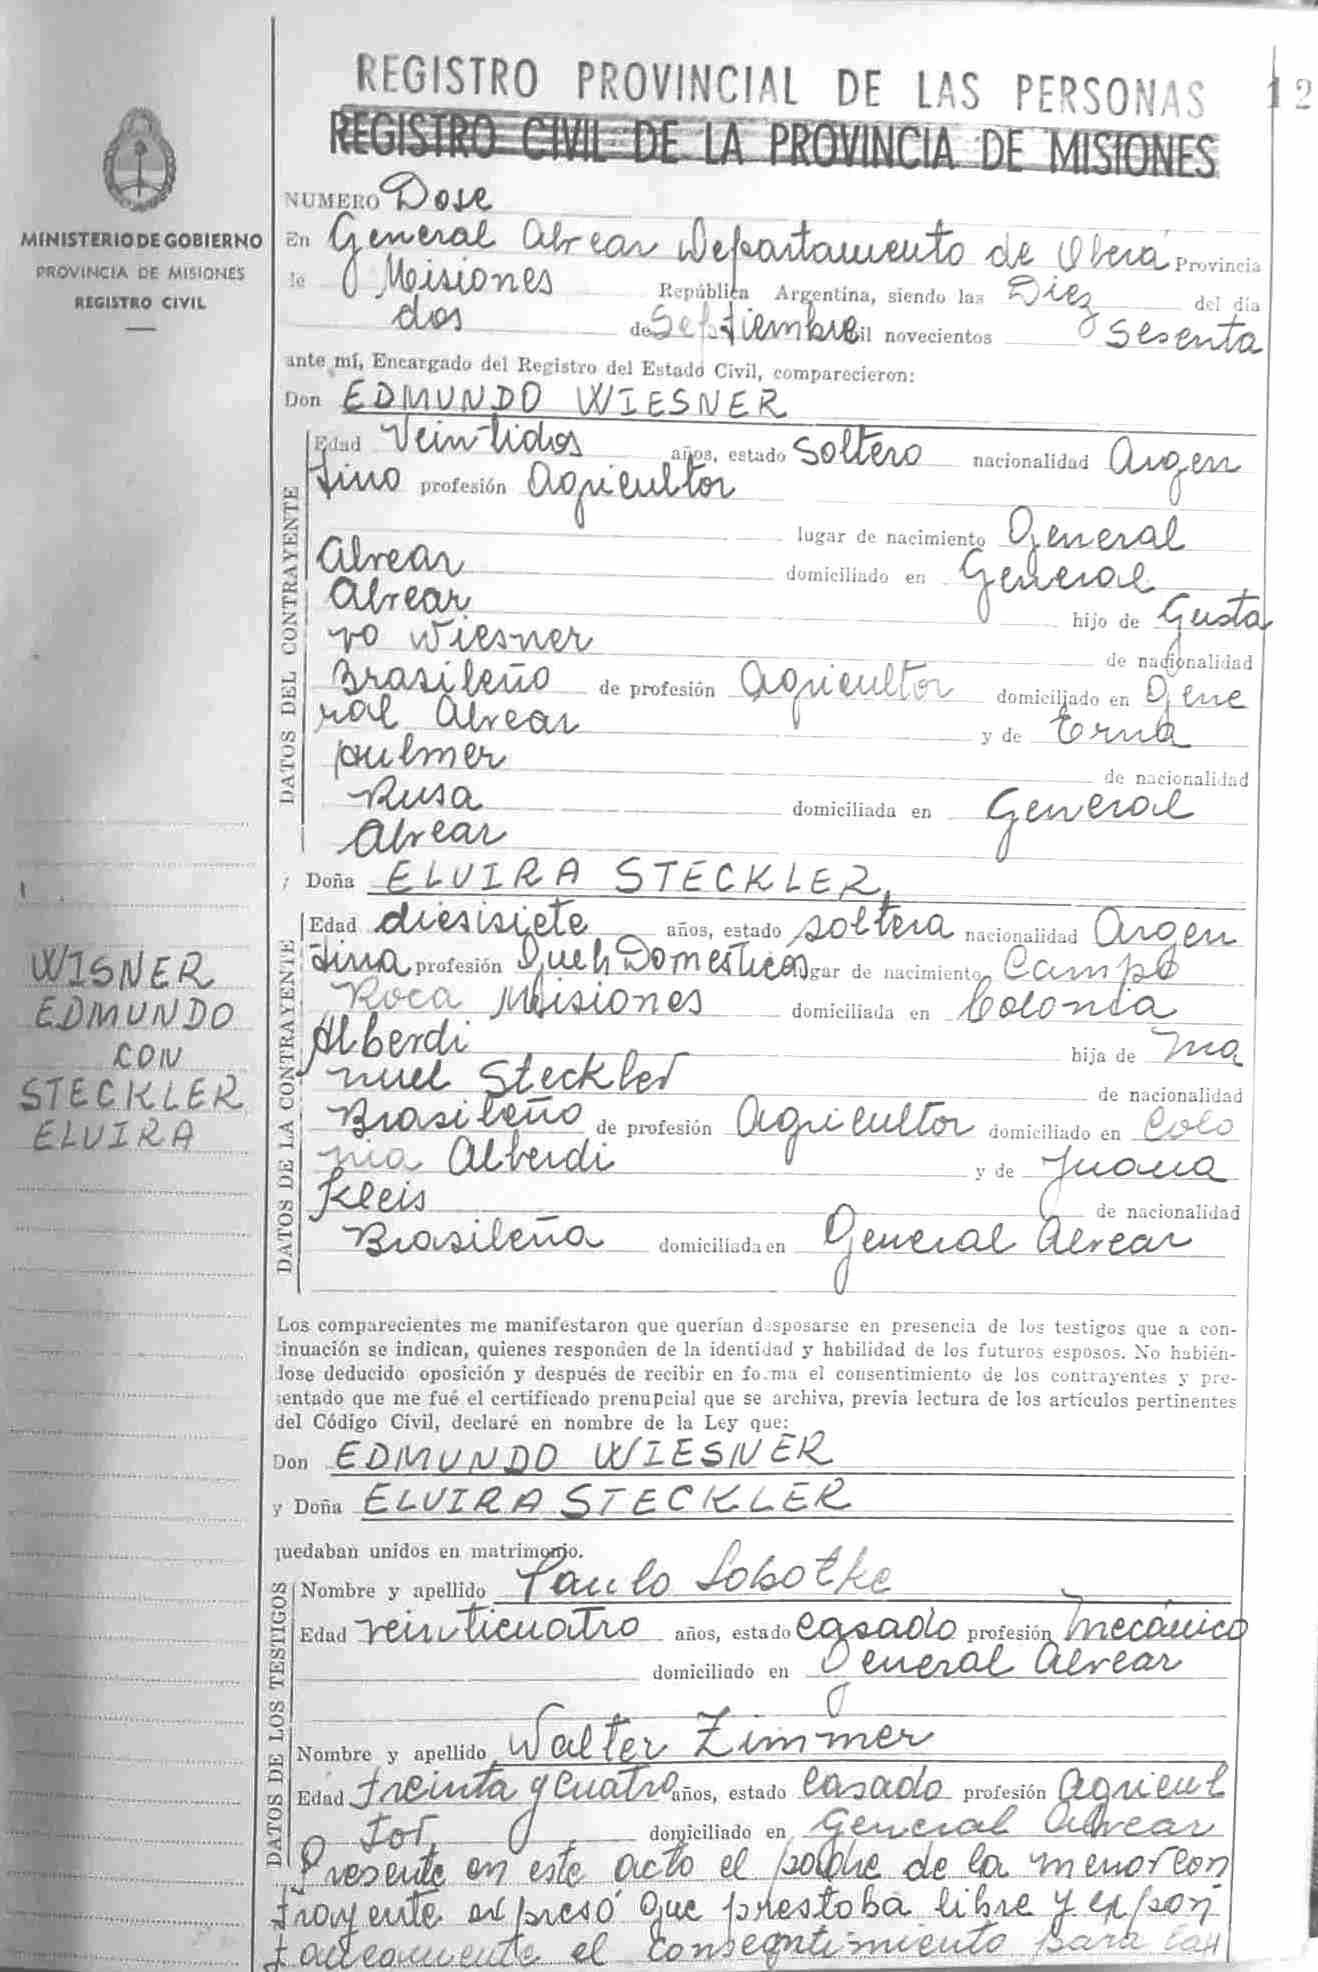 REGISTRO PROVINCIAL DE LAS PERSONAS
12
REGISTRO CIVIL DE LA PROVINCIA DE MISIONES
MINISTERIO DE GOBIERNO
PROVINCIA DE MISIONES
REGISTRO CIVIL
NUMERO Dose
En General Alvear Departamento de Obera Provincia
de Misiones República Argentina, siendo las Diez del día
dos de Septiembre mil novecientos sesenta
ante mí, Encargado del Registro del Estado Civil, comparecieron:
Don EDMUNDO WIESNER
DATOS DEL CONTRAYENTE
Edad Veintidos años, estado Soltero nacionalidad Argen
tino profesión Agricultor
lugar de nacimiento General
Alvear domiciliado en General
Alvear hijo de Gusta
vo Wiesner de nacionalidad
Brasileño de profesión Agricultor domiciliado en Gene
ral Alvear y de Erna
pulmer de nacionalidad
Rusa domiciliada en General
Alvear
y Doña ELVIRA STECKLER
DATOS DE LA CONTRAYENTE
Edad diesisiete años, estado soltera nacionalidad Argen
tina profesión Queh Domesticos lugar de nacimiento Campo
Roca Misiones domiciliada en Colonia
Alberdi hija de Ma
nuel Steckler de nacionalidad
Brasileño de profesión Agricultor domiciliado en Colo
nia Alberdi y de Juana
Kleis de nacionalidad
Brasileña domiciliada en General Alvear
WISNER
EDMUNDO
CON
STECKLER
ELVIRA
Los comparecientes me manifestaron que querían desposarse en presencia de los testigos que a con-
tinuación se indican, quienes responden de la identidad y habilidad de los futuros esposos. No habién-
dose deducido oposición y después de recibir en forma el consentimiento de los contrayentes y pre-
sentado que me fué el certificado prenupcial que se archiva, previa lectura de los artículos pertinentes
del Código Civil, declaré en nombre de la Ley que:
Don EDMUNDO WIESNER
y Doña ELVIRA STECKLER
quedaban unidos en matrimonio.
DATOS DE LOS TESTIGOS
Nombre y apellido Paulo Sobotke
Edad veinticuatro años, estado casado profesión Mecánico
domiciliado en General Alvear
Nombre y apellido Walter Zimmer
Edad treinta y cuatro años, estado casado profesión Agricul
tor domiciliado en General Alvear
Presente en este acto el padre de la menor con
trayente expresó que prestaba libre y espon
taneamente el consentimiento para